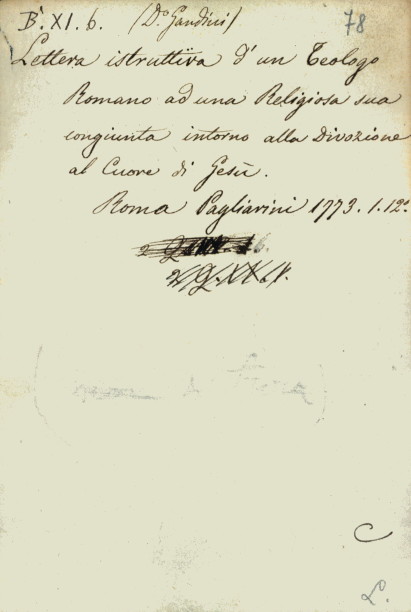 B. XI. 6. (D.º Gandini) 78
Lettera istruttiva d'un Teologo
Romano ad una Religiosa sua
congiunta intorno alla Divozione
al Cuore di Gesù.
Roma Pagliarini 1773. 1. 12º
C